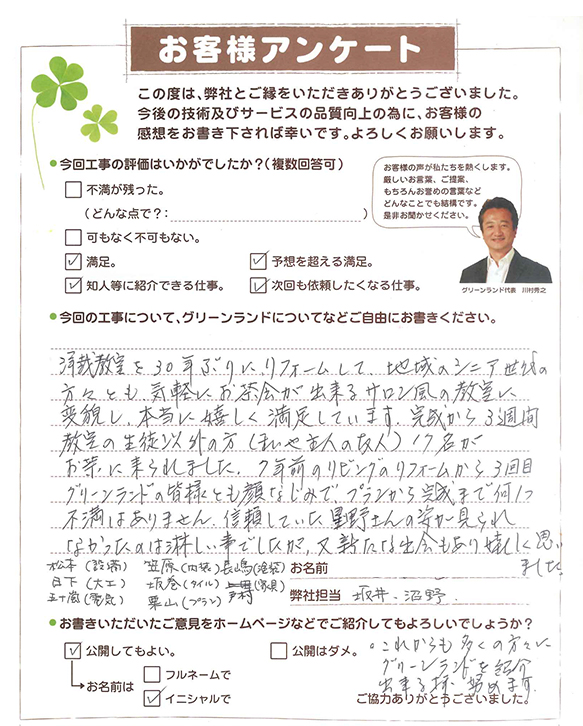 お客様アンケート
この度は、弊社とご縁をいただきありがとうございました。
今後の技術及びサービスの品質向上の為に、お客様の
感想をお書き下されば幸いです。よろしくお願いします。
●今回工事の評価はいかがでしたか?(複数回答可)
不満が残った。
(どんな点で?: )
可もなく不可もない。
満足。
予想を超える満足。
知人等に紹介できる仕事。
次回も依頼したくなる仕事。
お客様の声が私たちを熱くします。
厳しいお言葉、ご提案、
もちろんお誉めの言葉など
どんなことでも結構です。
是非お聞かせください。
グリーンランド代表 川村秀之
●今回の工事について、グリーンランドについてなどご自由にお書きください。
洋裁教室を30年ぶりにリフォームして、地域のシニア世代の
方々とも気軽にお茶会が出来るサロン風の教室に
変貌し、本当に嬉しく満足しています。完成から3週間
教室の生徒以外の方(まいや主人の友人)17名が
お茶に来られました。7年前のリビングのリフォームから3回目
グリーンランドの皆様とも顔なじみで、プランから完成まで何1つ
不満はありません。信頼していた星野さんの姿が見られ
なかったのは淋しい事でしたが、又新たな出会もあり嬉しく思い
ました。
松本(設備) 笠原(内装) 長嶋(塗装)
日下(大工) 坂巻(タイル) 戸村(家具)
五十嵐(電気) 栗山(プラン)
お名前
弊社担当 坂井、沼野
●お書きいただいたご意見をホームページなどでご紹介してもよろしいでしょうか?
公開してもよい。
公開はダメ。
お名前は
フルネームで
イニシャルで
。これからも多くの方々に
グリーンランドを紹介
出来る様 努めます。
ご協力ありがとうございました。